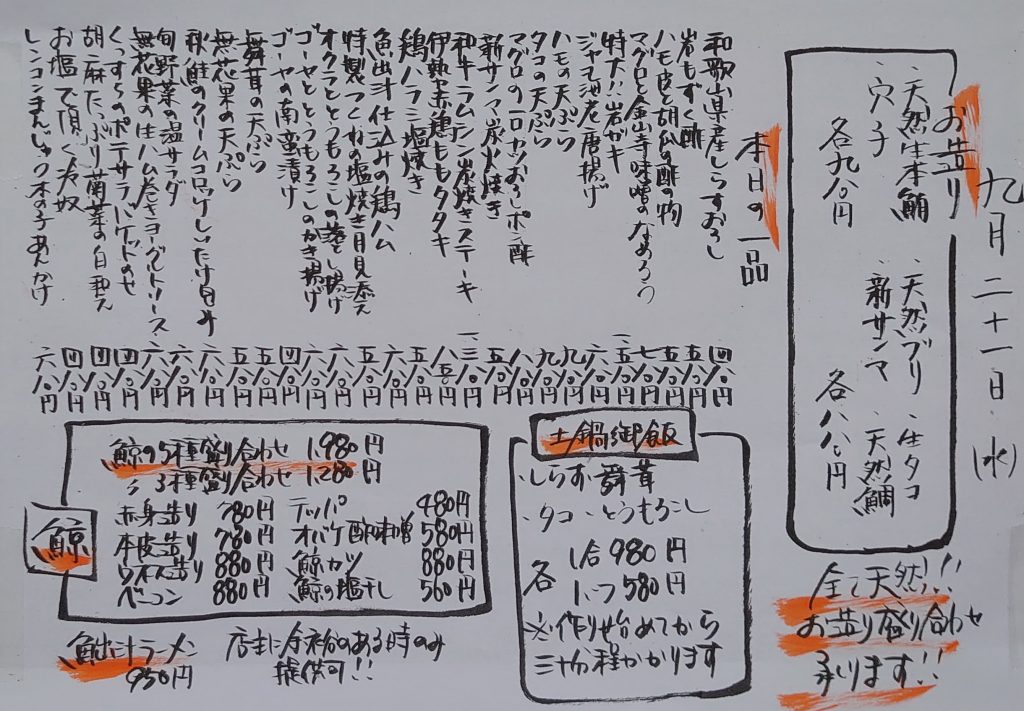 九月二十一日(水)
お造り
・天然生本鮪 ・天然ブリ ・生タコ
・穴子 ・新サンマ ・天然鯛
各九八〇円 各八八〇円
全て天然!!
お造り盛り合わせ
承ります!!
本日の一品
和歌山県産しらすおろし 四八〇円
岩もずく酢 五八〇円
ハモ皮と胡瓜の酢の物 七八〇円
マグロと金山寺味噌のなめろう
特大!!岩ガキ
ジャコ池老唐揚げ
ハモの天ぷら
タコの天ぷら
マグロの一口カツおろしポン酢
新サンマ炭火焼き
和牛ラムシン炭焼きステーキ
伊勢赤鶏ももタタキ
鶏ハラミ塩焼き
魚出汁仕込みの鶏ハム
特製つくねの塩焼き月見添え
オクラととうもろこしの落とし揚げ
ゴーヤととうもろこしのかき揚げ
ゴーヤの南蛮漬け
舞茸の天ぷら
無花果の天ぷら
秋鮭のクリームコロッケしいたけ包み
旬野菜の温サラダ
無花果の生ハム巻きヨーグルトソース
くつすらのポテサラバゲットのせ
胡麻たっぷり菊菜の白和え 四八〇円
お塩で頂く冷奴 四八〇円
レンコンまんじゅう木の子あんかけ 六八〇円
土鍋御飯
・しらす・舞茸
・タコ・とうもろこし
各 1合 980円
1/2つ 580円
※作り始めてから
三十分程かかります
鯨
鯨の5種盛り合わせ 1,980円
〃 3種盛り合わせ 1,280円
赤身造り 780円 テッパ 480円
本皮造り 780円 オバケ酢味噌 580円
ウネス造り 880円 鯨カツ 880円
ベーコン 880円 鯨の塩干し 560円
魚出汁ラーメン
950円
店主に余裕のある時のみ
提供可!!